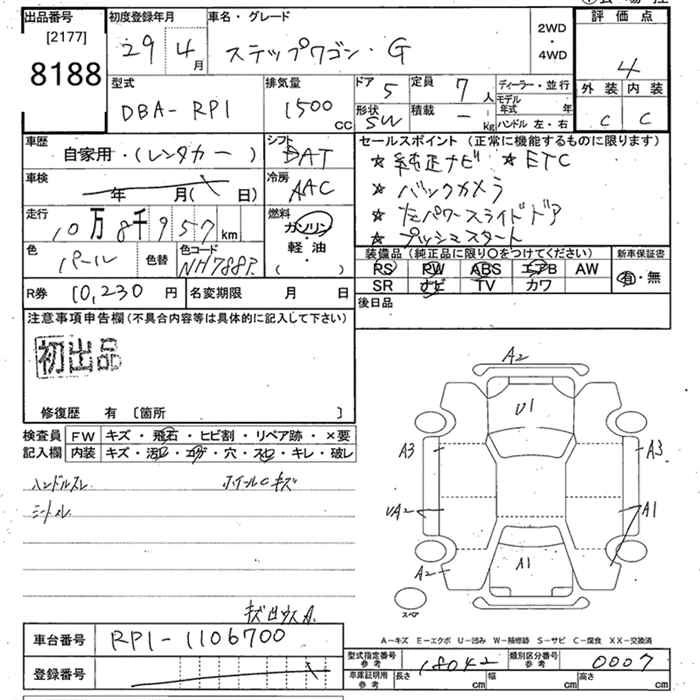 出品番号
[2177]
8188
初度登録年月
29 4月
車名・グレード
ステップワゴン・G
2WD
・
4WD
評価点
4
外装 内装
C C
型式
DBA-RP1
排気量
1500cc
ドア 5
定員 7人
形状 SW
積載 - kg
ディーラー・並行
モデル年式 年
ハンドル 左・右
車歴
自家用・(レンタカー)
シフト
DAT
車検
年 月( 日)
冷房
AAC
走行
10万8千957km
燃料
ガソリン
軽・油
( ・ )
色
パール
色替
色コード
NH788P
R券 10,230円
名変期限 月 日
セールスポイント(正常に機能するものに限ります)
★純正ナビ ★ETC
★バックカメラ
★左パワースライドドア
★プッシュスタート
装備品(純正品に限り○をつけてください)
RS RW ABS エアB AW
SR ナビ TV カワ
新車保証書
有・無
後日品
注意事項申告欄(不具合内容等は具体的に記入して下さい)
初出品
修復歴 有 〔箇所 〕
検査員記入欄
FW キズ・飛石・ヒビ割・リペア跡・×要
内装 キズ・汚レ・コゲ・穴・スレ・キレ・破レ
ハンドルスレ ホイールCキズ
シートスレ
A2
U1
A3 A3
UA2 A1
A1
A2
スペア
A-キズ E-エクボ U-凹み W-補修跡 S-サビ C-腐食 XX-交換済
車台番号 RP1-1106700
登録番号
型式指定番号 参考 18042
類別区分番号 参考 0007
車庫証明用 参考 長さ cm 幅 cm 高さ cm